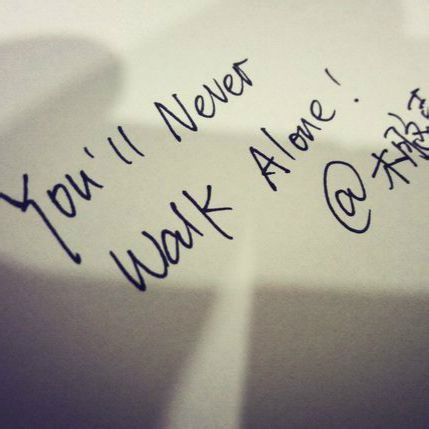 You'll Never
Walk Alone!
@